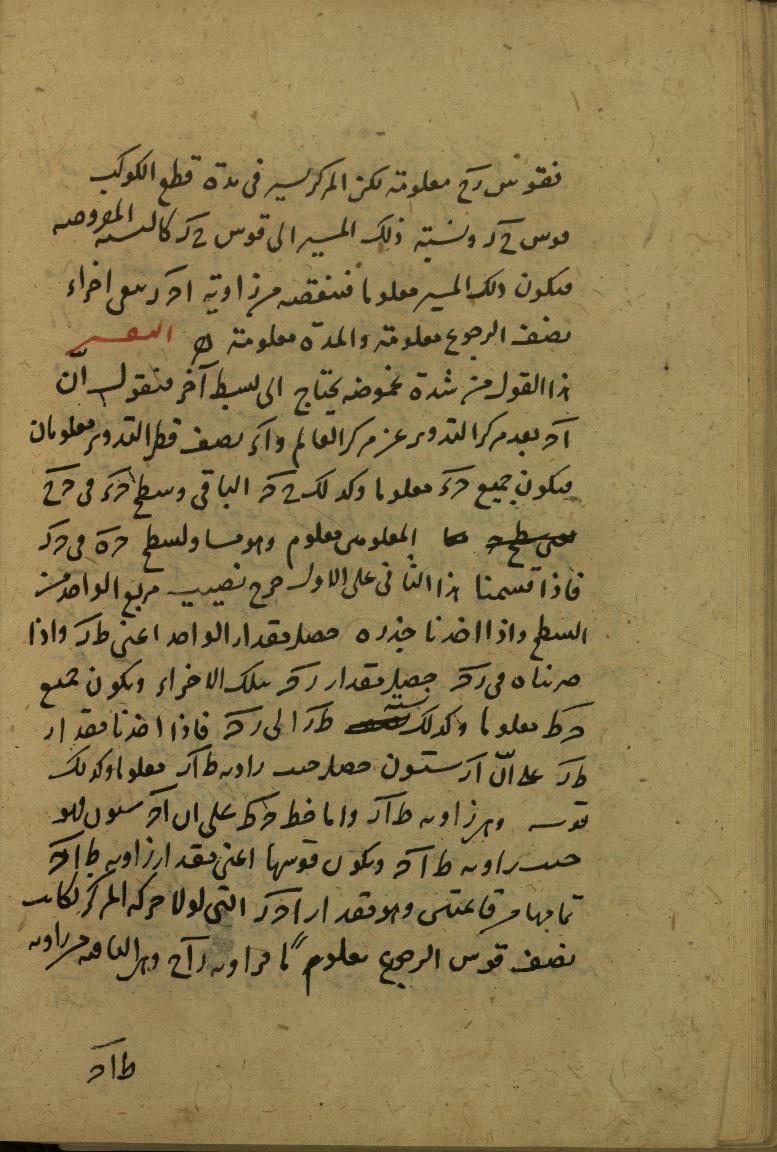 فقوس رح معلومة لكن المركز يسير فى مدة قطع الكوكب
قوس ح ر ونسبة ذلك المسير الى قوس ح ر كالنسبة المفروضة
فيكون ذلك المسير معلوما فننقصه من زاوية ا ح ر يبقى اجزاء
نصف الرجوع معلومة والمدة معلومة التفسير
هذا القول من شدة غموضه يحتاج الى بسط آخر فنقول انّ
ا ح بعد مركز التدوير عن مركز العالم و ا ء نصف قطر التدوير معلومان
فيكون جميع ح ء معلوما وكذلك ح الباقى وسطح ح ء فى ح
المعلومين معلوم وهو مساو لسطح ح ه فى ح ر
فاذا قسمنا هذا الثانى على الاول خرج نصيب مربع الواحد من
السطح واذا اخذنا جذره حصل مقدار الواحد اعنى ط ر واذا
ضربناه فى ر ح حصل مقدار ر ح بتلك الاجزاء ويكون جميع
ح ط معلوما وكذلك نسبة ط ر الى ر ح فاذا اخذنا مقدار
ط ر على انّ ا ر ستون حصل جيب زاوية ط ا ر معلوما وكذلك
قوسه وهى زاوية ط ا ر واما خط ح ط على ان ا ح ستون فهو
جيب زاوية ط ا ح ويكون قوسها اعنى مقدار زاوية ط ا ح
تمامها من قائمتين وهو مقدار ا ح ر التى لولا حركة المركز لكانت
نصف قوس الرجوع معلوم زاوية ر ا ح وهى الباقية من زاوية
ط ا ح